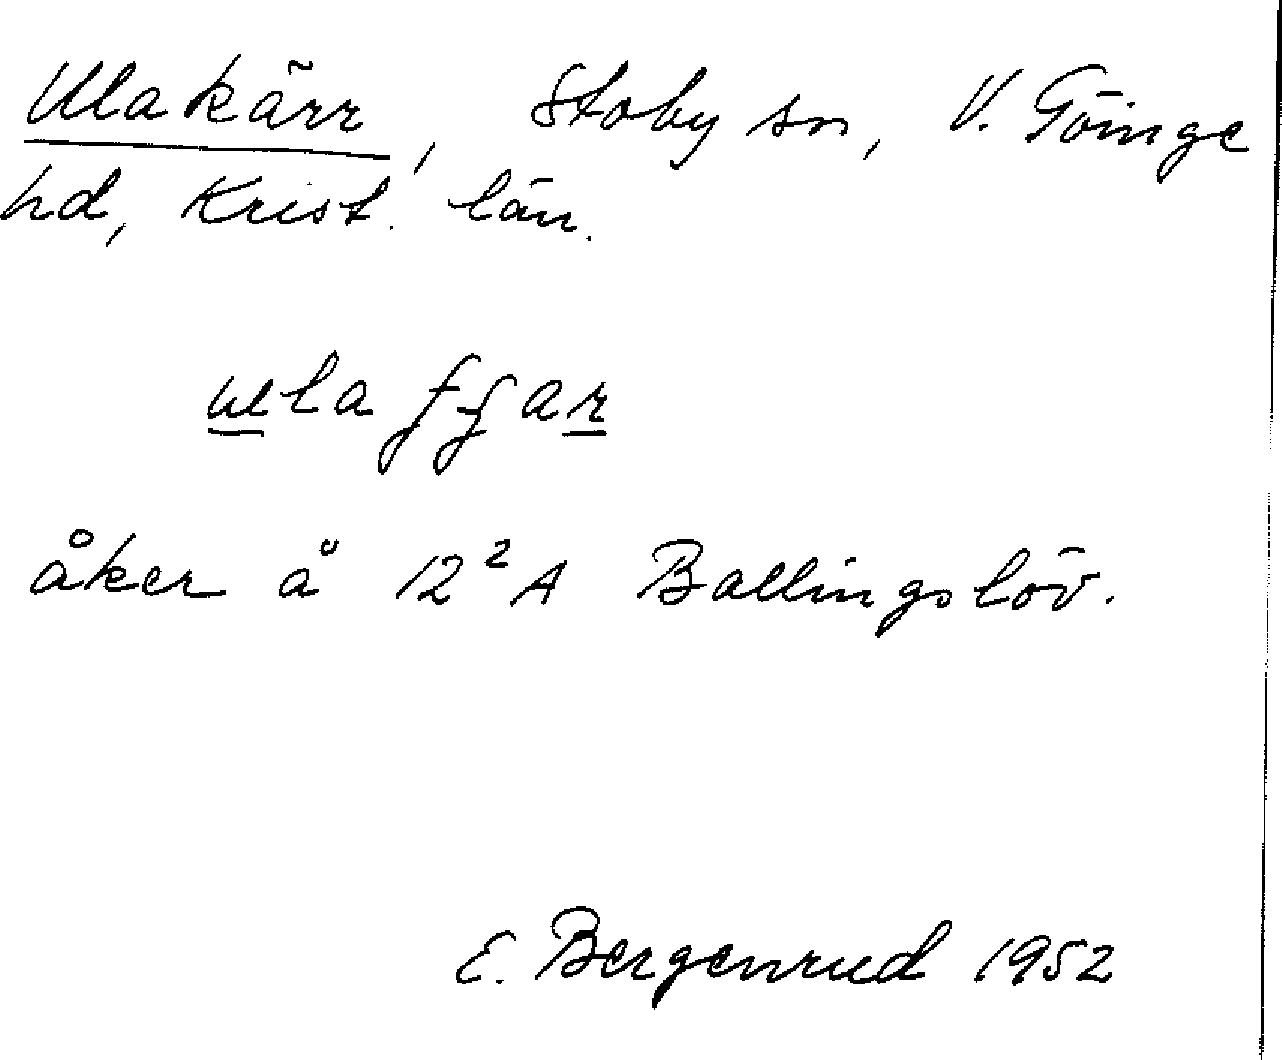 Ulakärr, Stoby sn, V. Göinge
hd, Krist. län.
åker å 12²A Ballingslöv.
E. Bergenrud 1952